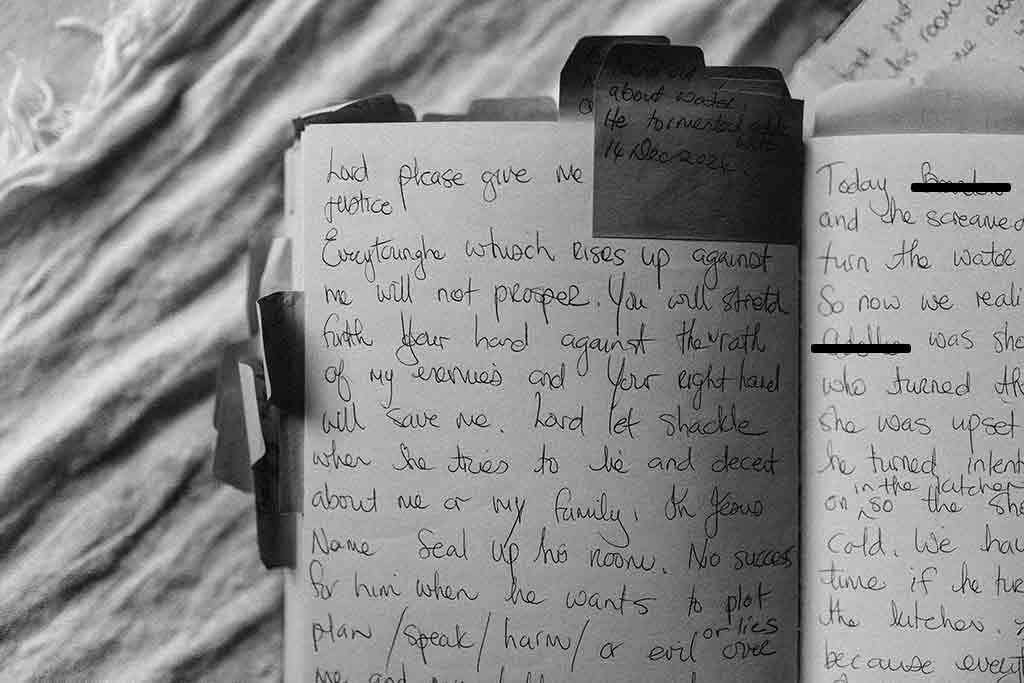 about water.
He tormented
14 Dec 2024.
Lord please give me
justice
Everytounghe whisch rises up against
me will not prosper. You will stretch
forth Your hand against the wrath
of my enemies and Your right hand
will save me. Lord let shackle
when he tries to lie and deceit
about me or my family. In Jesus
Name Seal up his room. No success
for him when he wants to plot
plan /speak/ harm/ or evil or lies over
me and
Today
and she screamed
turn the water
So now we reali
was sho
who turned the
she was upset
he turned intent
in the kitchen
on, so the sho
Cold. We hav
time if he tur
the kitchen.
because everyt
but just
his room
me abou